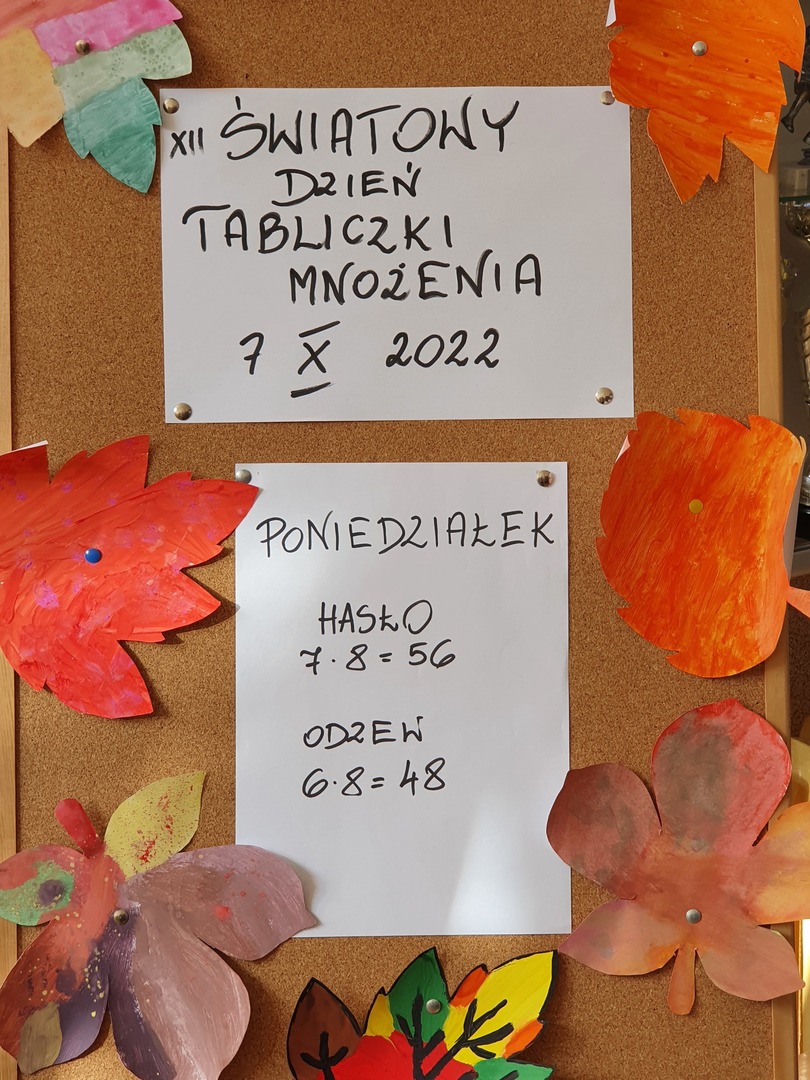 XII ŚWIATOWY
DZIEŃ
TABLICZKI
MNOŻENIA
7 X 2022
PONIEDZIAŁEK
HASŁO
7·8=56
ODZEW
6·8=48